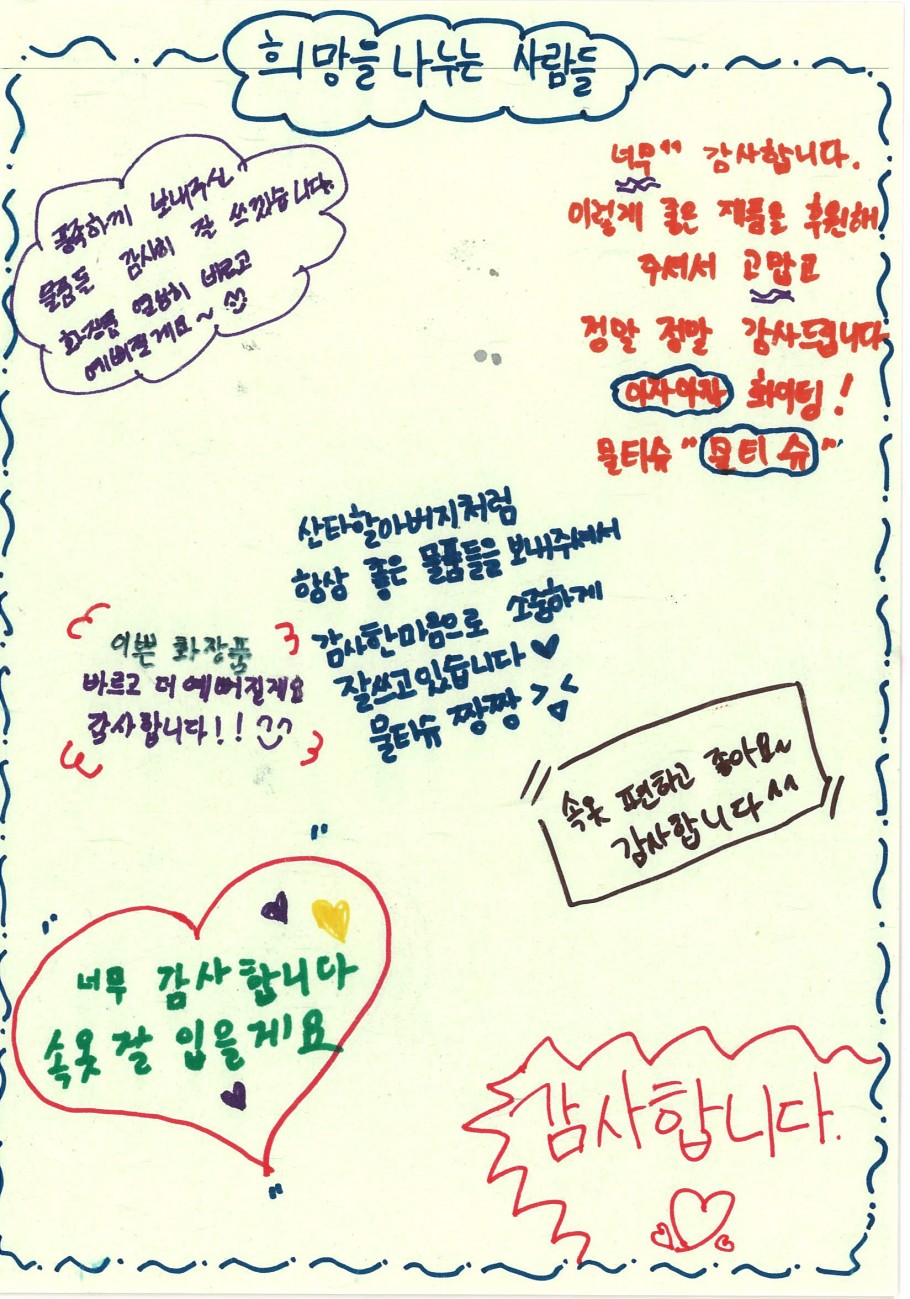 희망을 나누는 사람들
풍족하게 보내주신
물품들 감사히 잘 쓰겠습니다.
화장품 열심히 바르고
예뻐질게요~
너무 감사합니다.
이렇게 좋은 제품을 후원해
주셔서 고맙고
정말 정말 감사드립니다
아자아자 화이팅!
물티슈 "물티슈"
산타할아버지처럼
항상 좋은 물품들을 보내주셔서
감사한마음으로 소중하게
잘쓰고있습니다 ♥
물티슈 짱짱 >.<
이쁜 화장품
바르고 더 예뻐질게요
감사합니다!! ^^
속옷 편하고 좋아요~
감사합니다 ^^
너무 감사합니다
속옷 잘 입을게요
감사합니다.